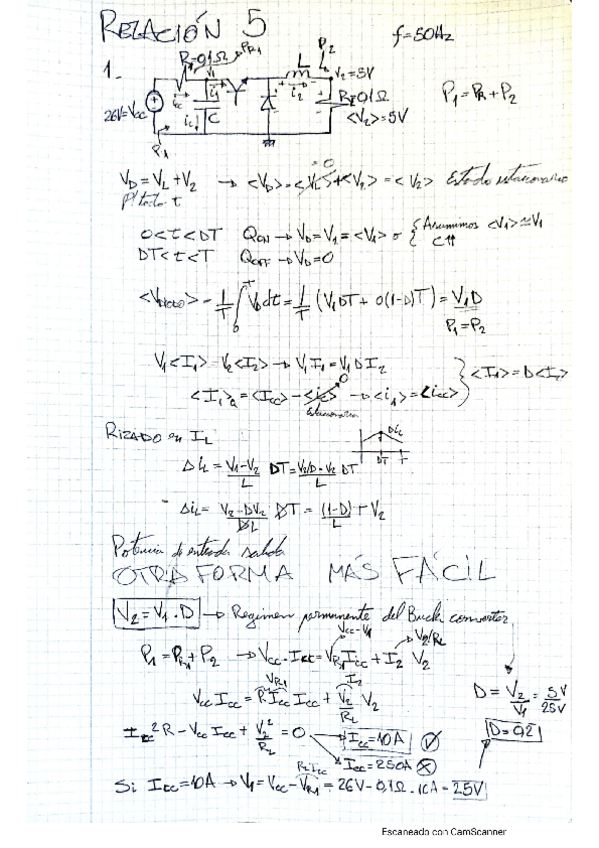 RELACIÓN 5
f=50Hz
1_
R=0,1Ω
PR1
P2
V1
L
V2=5V
P1=PR+P2
26V=Vcc
icc
i1
ic
C
i2
R=0,1Ω
<V2>=5V
P1
VD=VL+V2 → <VD>=<VL>+<V2>=<V2> Estado estacionario
=0
P/ todo t
0<t<DT QON→VD=V1=<V1> { Asumimos <V1>≃V1
C↑↑
DT<t<T QOFF→VD=0
<VDIODO>=1/T ∫0T VD dt = 1/T (V1DT + 0(1-D)T) = V1D
P1=P2
V1<I1>=V2<I2> → V1I1=V1DI2
<I1>=D<I2>
<I1>=<Icc>-<ic> → <i1>=<icc>
0
Estacionario
RIZADO en IL
ΔiL
ΔiL = V1-V2/L DT = V2/D-V2/L DT
DT T
ΔiL = V2-DV2/DL DT = (1-D)/L T V2
Potencia de entrada salida
OTRA FORMA MÁS FÁCIL
V2=V1·D → Regimen permanente del Buck converter
Vcc-V1
V2/RL
P1=PR1+P2 → Vcc·Icc=VR1Icc+I2 V2
VR1 I2
Vcc Icc = R Icc Icc + V2/RL V2
D=V2/V1=5V/25V
Icc²R-Vcc Icc+V2²/RL=0
Icc=10A
D=0,2
Icc=250A
R1·Icc
Si Icc=10A → V1=Vcc-VR1=26V-0,1Ω·10A=25V
Escaneado con CamScanner